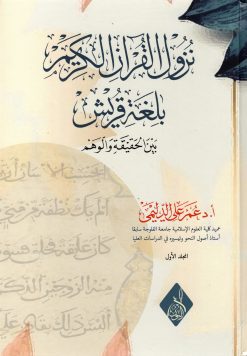 نزول القرآن الكريم
بلغة قريش
بين الحقيقة والوهم
أ.د عمر علي الدليمي
عميد كلية العلوم الإسلامية جامعة الفلوجة سابقا
أستاذ أصول النحو وتيسيره في الدراسات العليا
المجلد الأول